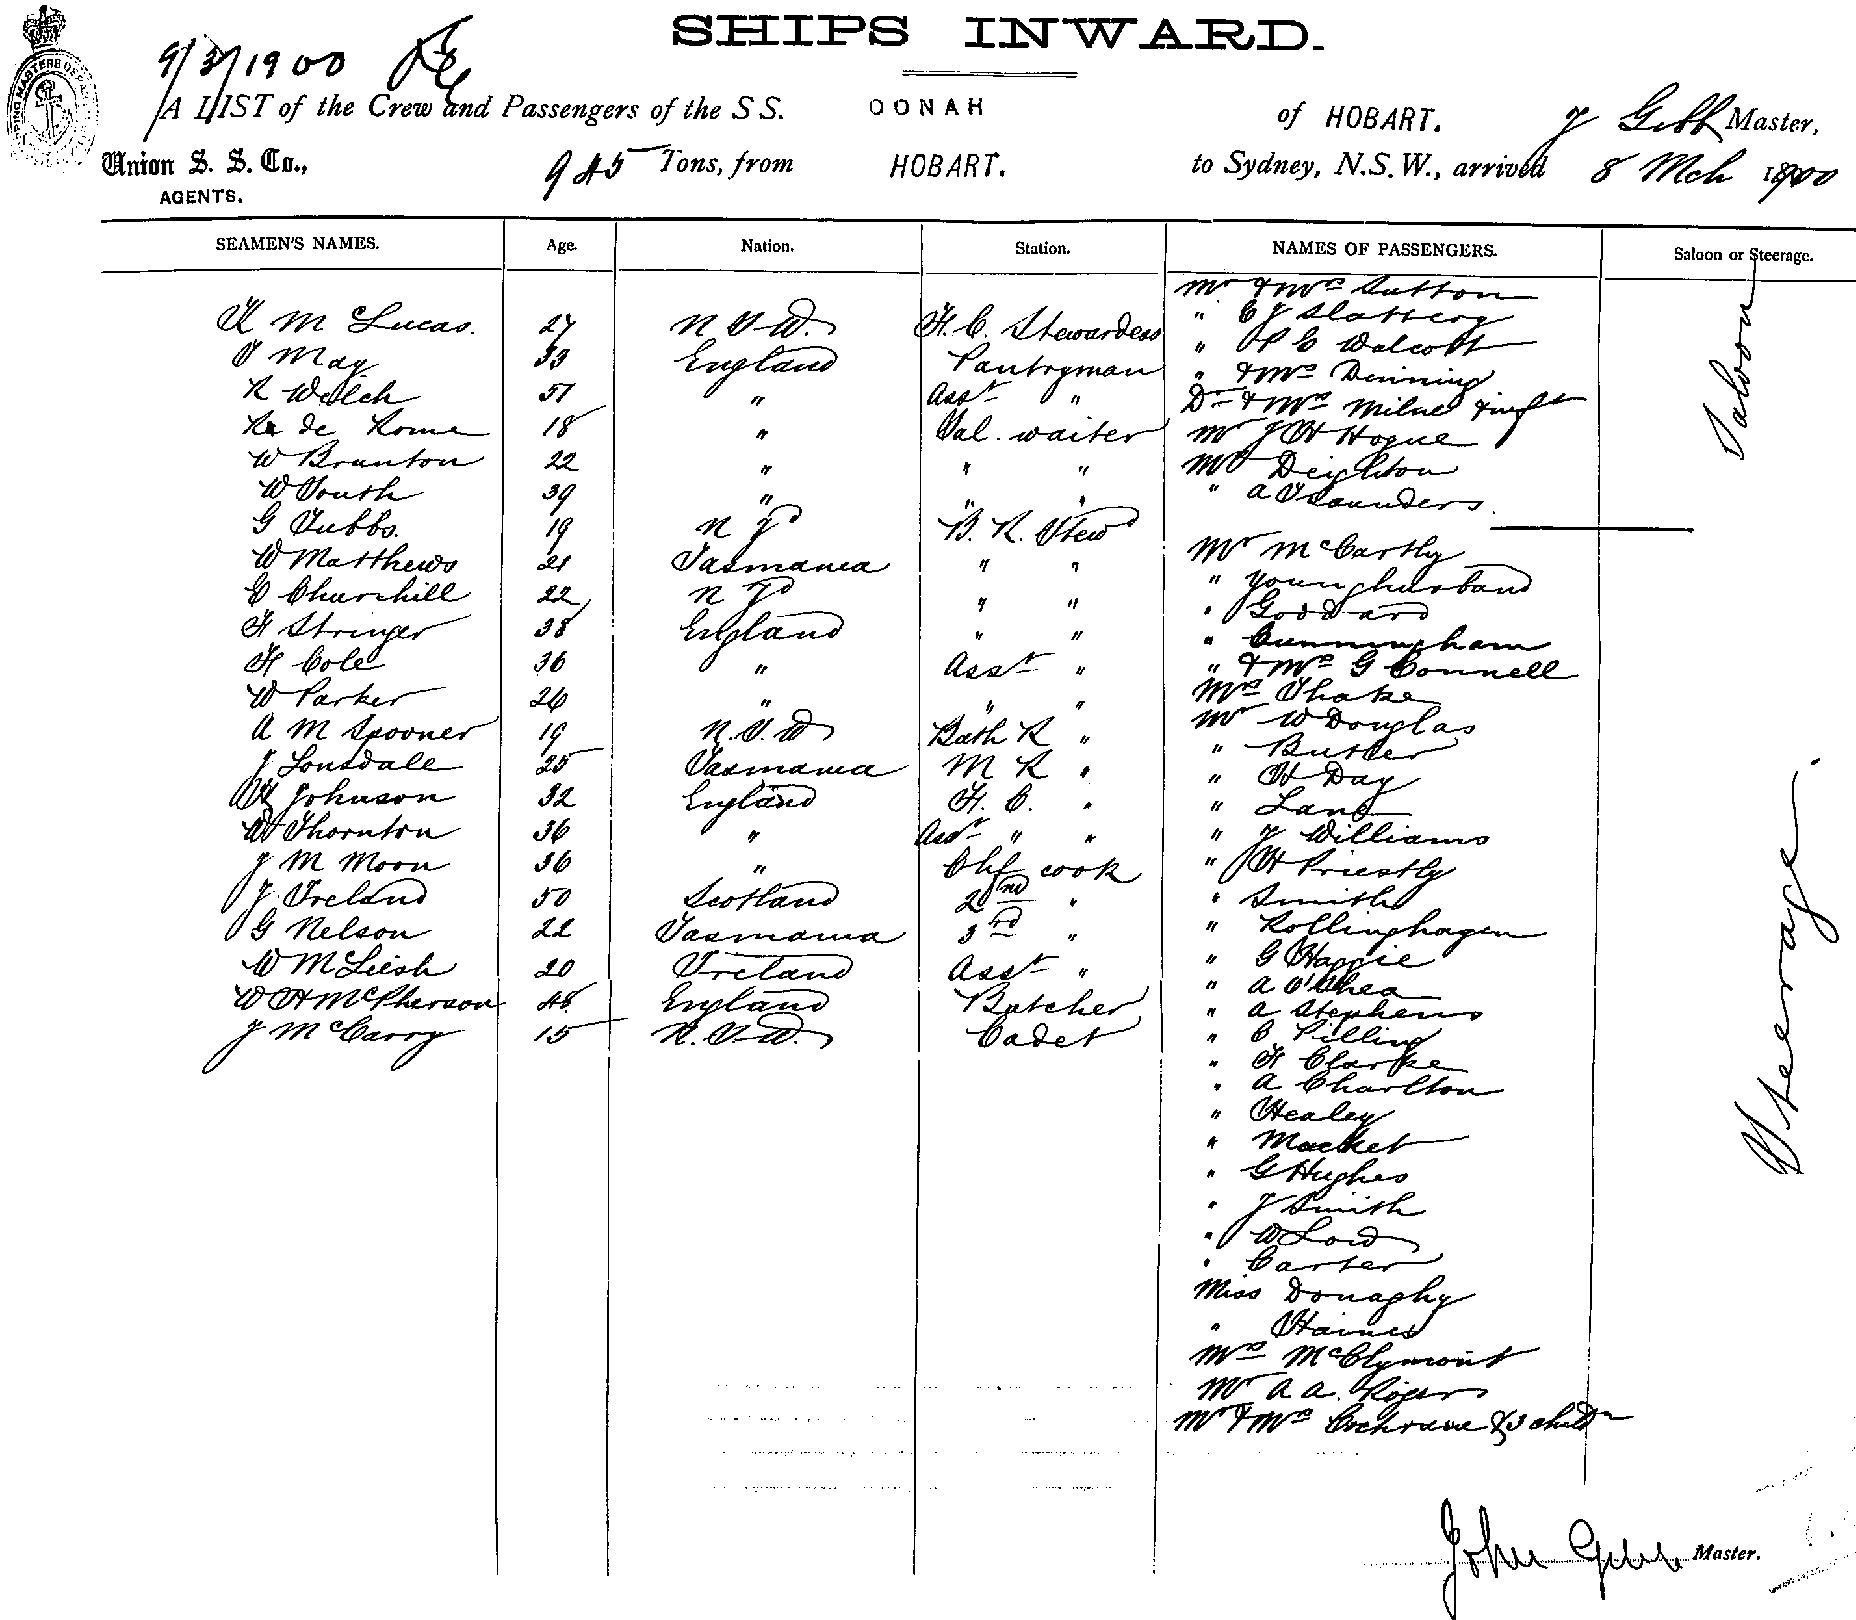 SHIPS INWARD.
9/3/1900
A LIST of the Crew and Passengers of the S S. OONAH of HOBART. J Gibb Master,
Union S. S. Co., 945 Tons, from HOBART. to Sydney, N.S.W., arrived 8 Mch 1900
AGENTS.
SEAMEN'S NAMES. Age. Nation. Station. NAMES OF PASSENGERS. Saloon or Steerage.
Mr & Mrs Sutton
M Lucas. 27 N S W. F. C. Stewardess " C J Slattery
May 33 England Pantryman " Walcott
R Welch 51 " Asst " " & Mrs Dinning
Dr & Mrs Milne & inft
de Rome 18 " Sal. waiter Mr J H Hogue
W Brunton 22 " " " Mr Deighton
W South 39 " " " " A Saunders.
Saloon
G Tubbs. 19 N Zd B. R. Stewd
W Matthews 21 Tasmania " " Mr McCarthy
C Churchill 22 N Zd " " " Younghusband
F Stringer 38 England " " " Goddard
" Cunningham
F Cole 36 " Asst " " & Mrs G Connell
W Parker 26 " " " Mrs Thake
A M Spooner 19 N. S. W Bath R " Mr W Douglas
" Butler
J Lonsdale 25 Tasmania M R " " H Day
Johnson 32 England F. C. " " Lane
W Thornton 36 " Asst " " " J Williams
J M Moon 36 " Chf cook " H Priestly
J Ireland 50 Scotland 2nd " " Smith
G Nelson 22 Tasmania 3rd " " Rollinghagen
" G Happie
W McLeish 20 Ireland Asst " " A O'Shea
W H McPherson 45 England Butcher " A Stephens
J McGarry 15 N. S. W. Cadet " C Pilling
" F Clarke
" A Charlton
" Healey
" Macket
" G Hughes
" J Smith
" W Lord
" Carter
Miss Donaghy
" Haines
Mrs McClymont
Mr A A. Rogers
Mr & Mrs Cochrane & 3 childn
Steerage.
John Gibb Master.